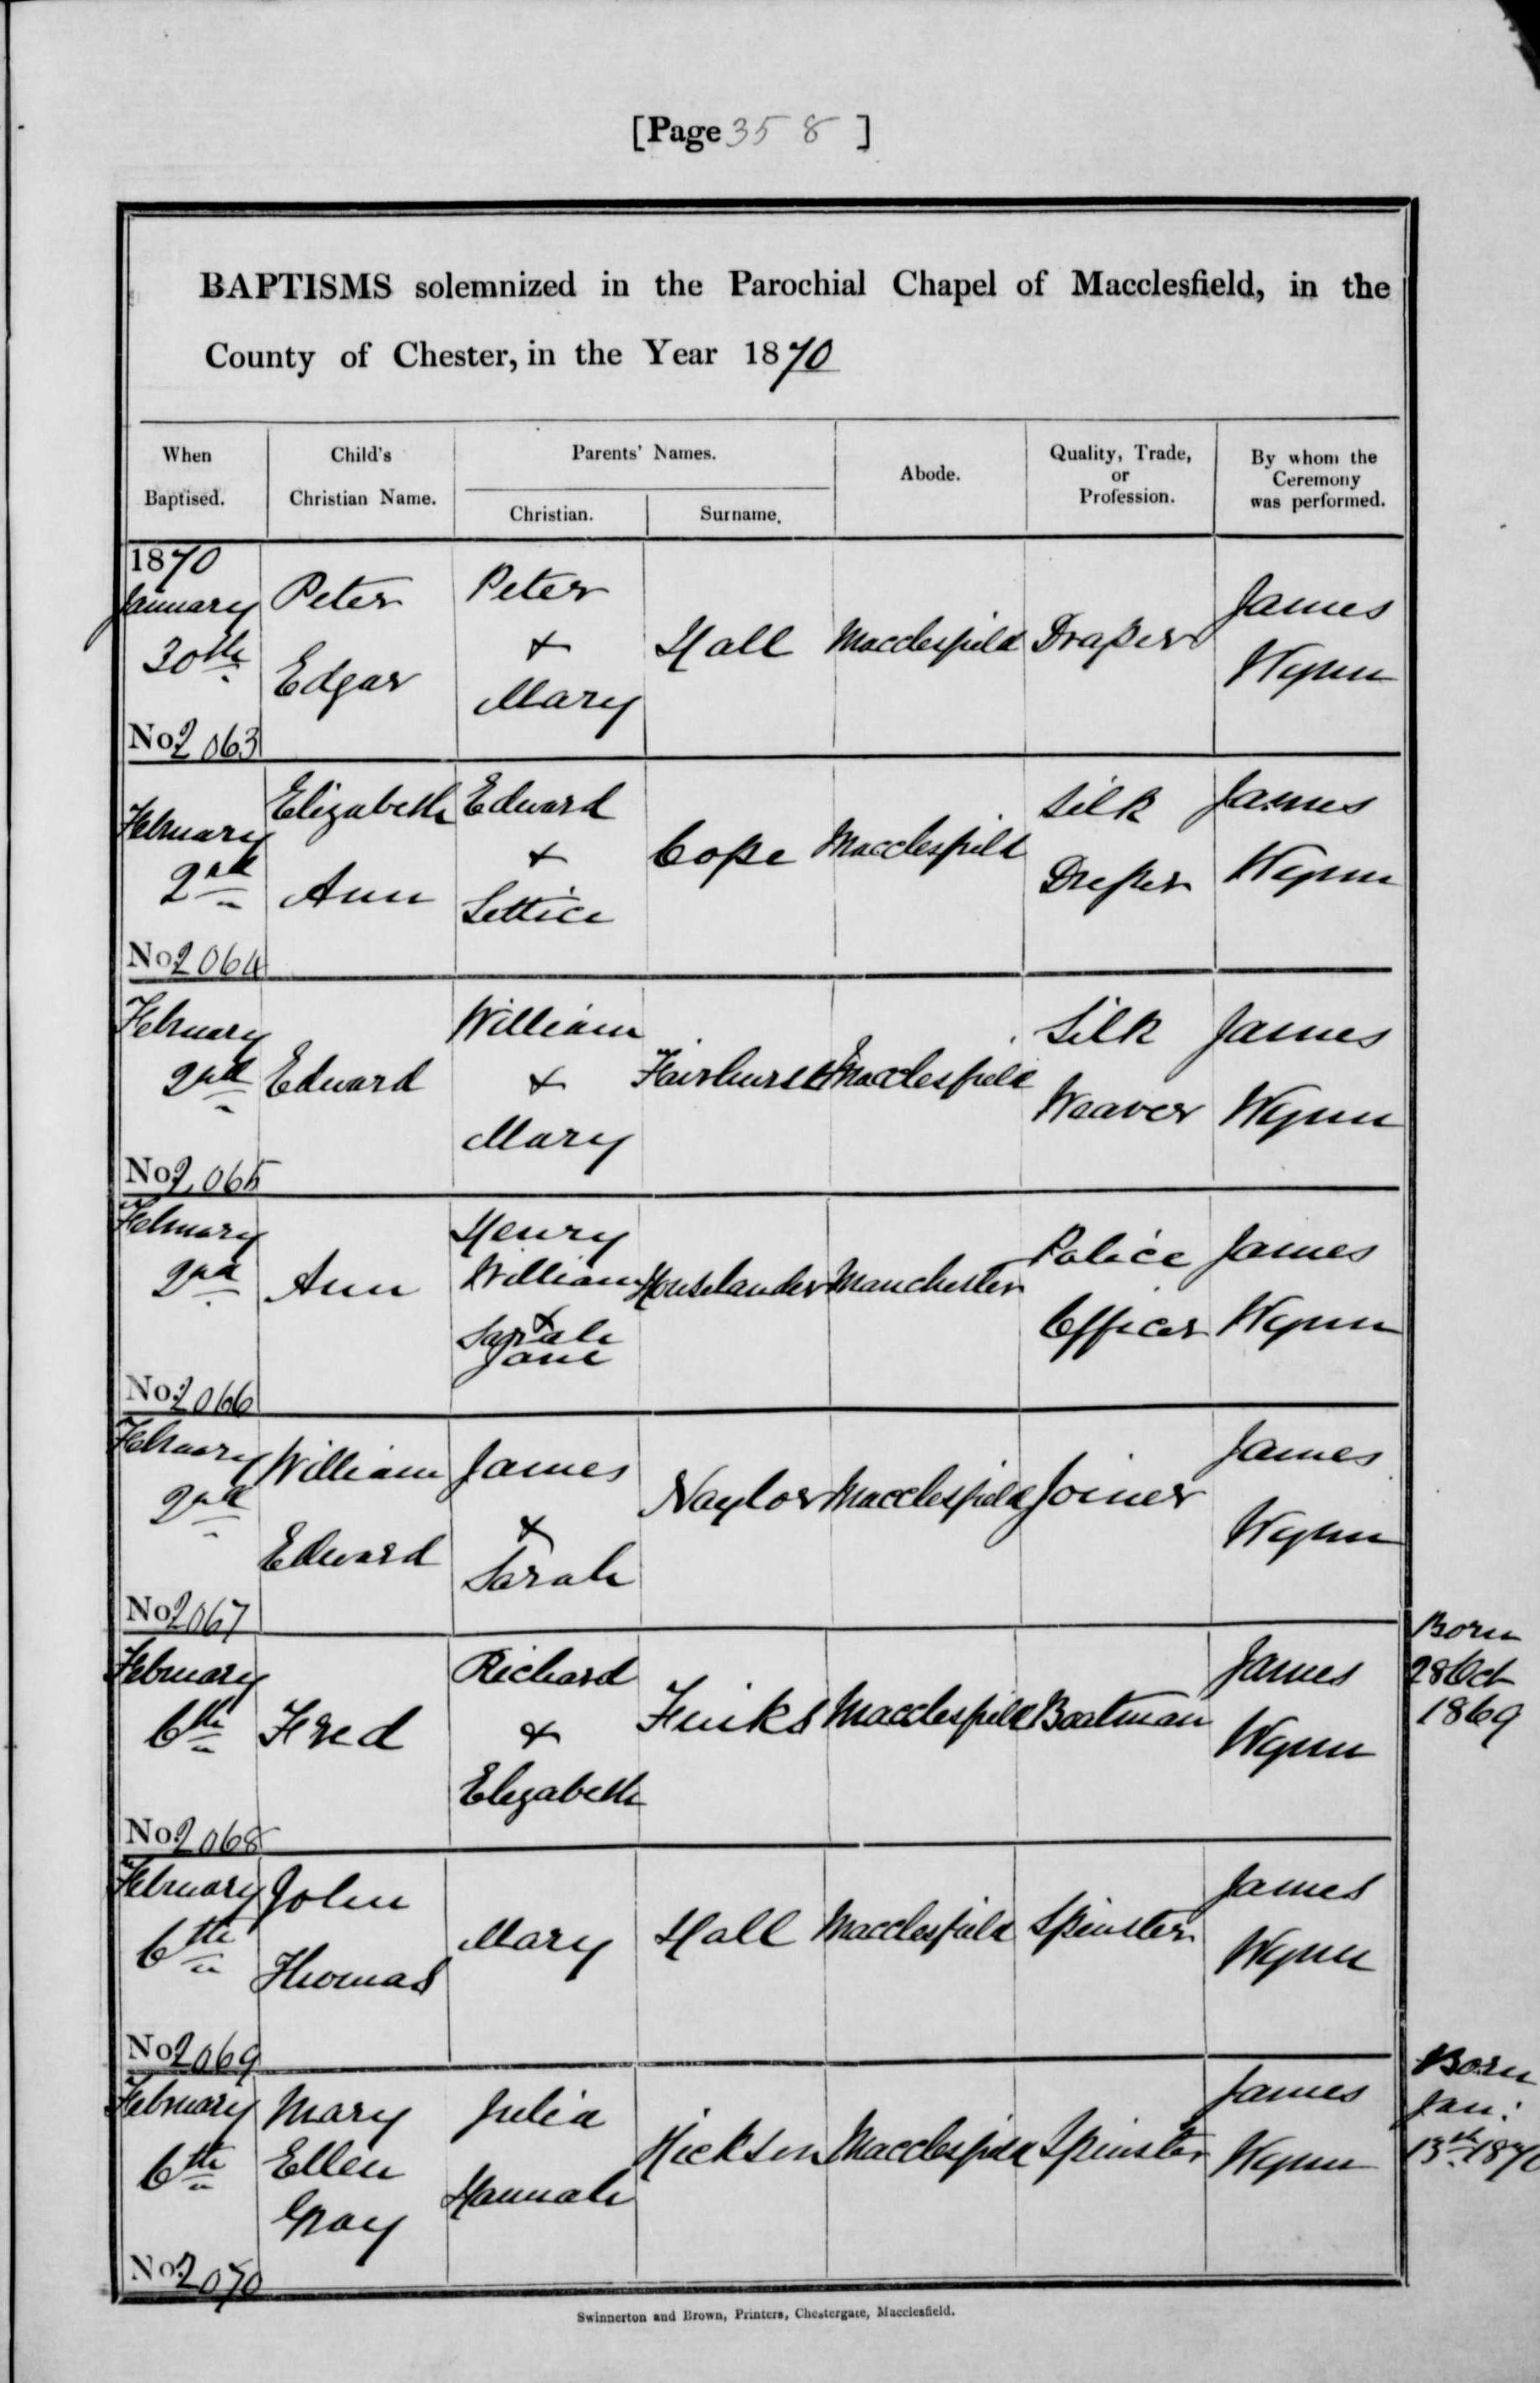 [Page 358 ]
BAPTISMS solemnized in the Parochial Chapel of Macclesfield, in the
County of Chester, in the Year 1870
When Baptised. Child's Christian Name. Parents' Names. Christian. Surname. Abode. Quality, Trade, or Profession. By whom the Ceremony was performed.
1870
January 30th
No. 2063
Peter Edgar
Peter & Mary
Hall
Macclesfield
Draper
James Wynn
February 2nd
No. 2064
Elizabeth Ann
Edward & Lettice
Cope
Macclesfield
Silk Dresser
James Wynn
February 2nd
No. 2065
Edward
William & Mary
Fairhurst
Macclesfield
Silk Weaver
James Wynn
February 2nd
No. 2066
Ann
Henry William & Sarah Jane
Houselander
Manchester
Police Officer
James Wynn
February 2nd
No. 2067
William Edward
James & Sarah
Naylor
Macclesfield
Joiner
James Wynn
February 6th
No. 2068
Fred
Richard & Elizabeth
Finks
Macclesfield
Boatman
James Wynn
Born
28 Oct
1869
February 6th
No. 2069
John Thomas
Mary
Hall
Macclesfield
Spinster
James Wynn
February 6th
No. 2070
Mary Ellen Gray
Julia Hannah
Hickson
Macclesfield
Spinster
James Wynn
Born
Jan:
13th 1870
Swinnerton and Brown, Printers, Chestergate, Macclesfield.